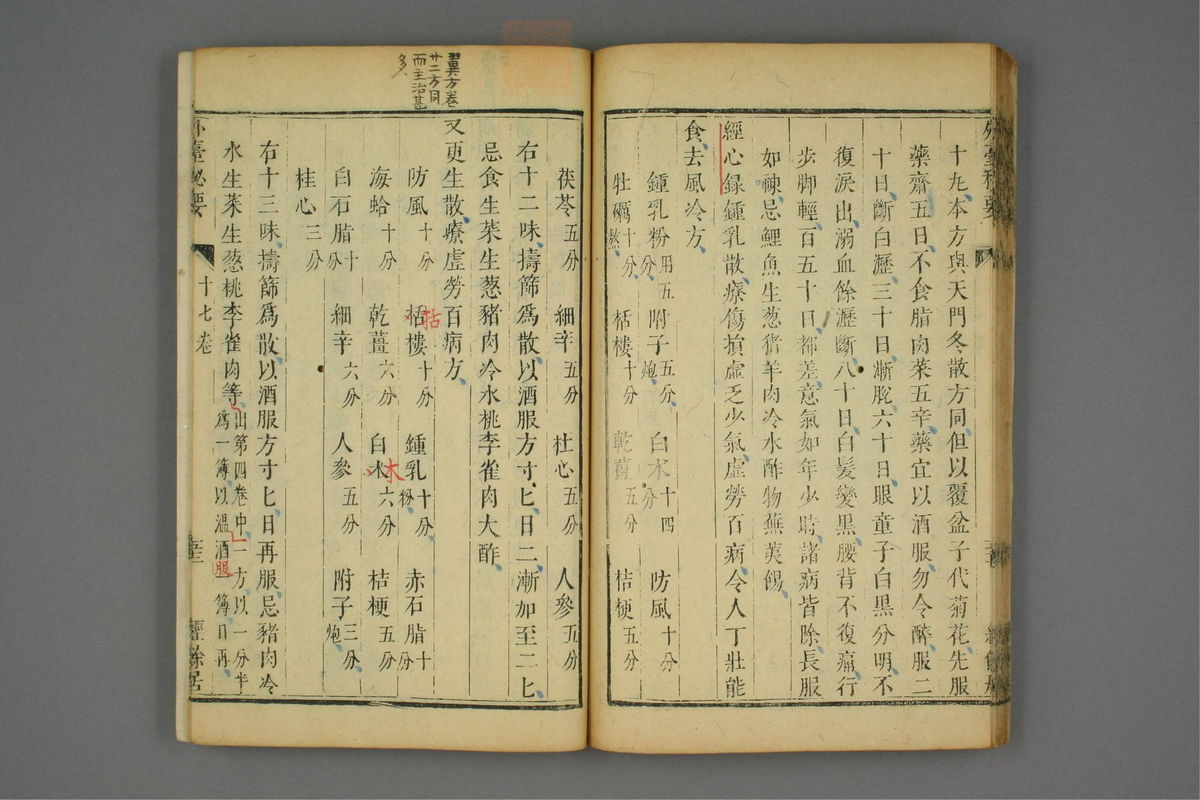 十九本方與天門冬散方同但以覆盆子代菊花先服
藥齋五日不食脂肉菜五辛藥宜以酒服勿令醉服二
十日斷白瀝三十日漸脫六十日眼童子白黑分明不
復淚出溺血餘瀝斷八十日白髮變黑腰背不復痛行
步脚輕百五十日都差意氣如年少時諸病皆除長服
如神忌鯉魚生葱猪羊肉冷水酢物蕪荑餳
經心録鍾乳散療傷損虛乏少氣虛勞百病令人丁壯能
食去風冷方
鍾乳粉用五分 附子五分炮 白朮十四分 防風十分
牡礪十分熬 栝樓十分 乾薑五分 桔梗五分
茯苓五分 細辛五分 杜心五分 人參五分
右十二味擣篩爲散以酒服方寸匕日二漸加至二匕
忌食生菜生葱豬肉冷水桃李雀肉大酢
又更生散療虛勞百病方
防風十分 栝樓十分 鍾乳十分粉 赤石脂十分
海蛤十分 乾薑六分 白朮六分 桔梗五分
白石脂十分 細辛六分 人參五分 附子三分炮
桂心三分
右十三味擣篩爲散以酒服方寸匕日再服忌豬肉冷
水生菜生葱桃李雀肉等出第四卷中一方以一分半
爲一薄以溫酒服一薄日再
外臺秘要
十七卷
經餘居
翼方卷
廿二方同
而主治甚
多
栝
朮